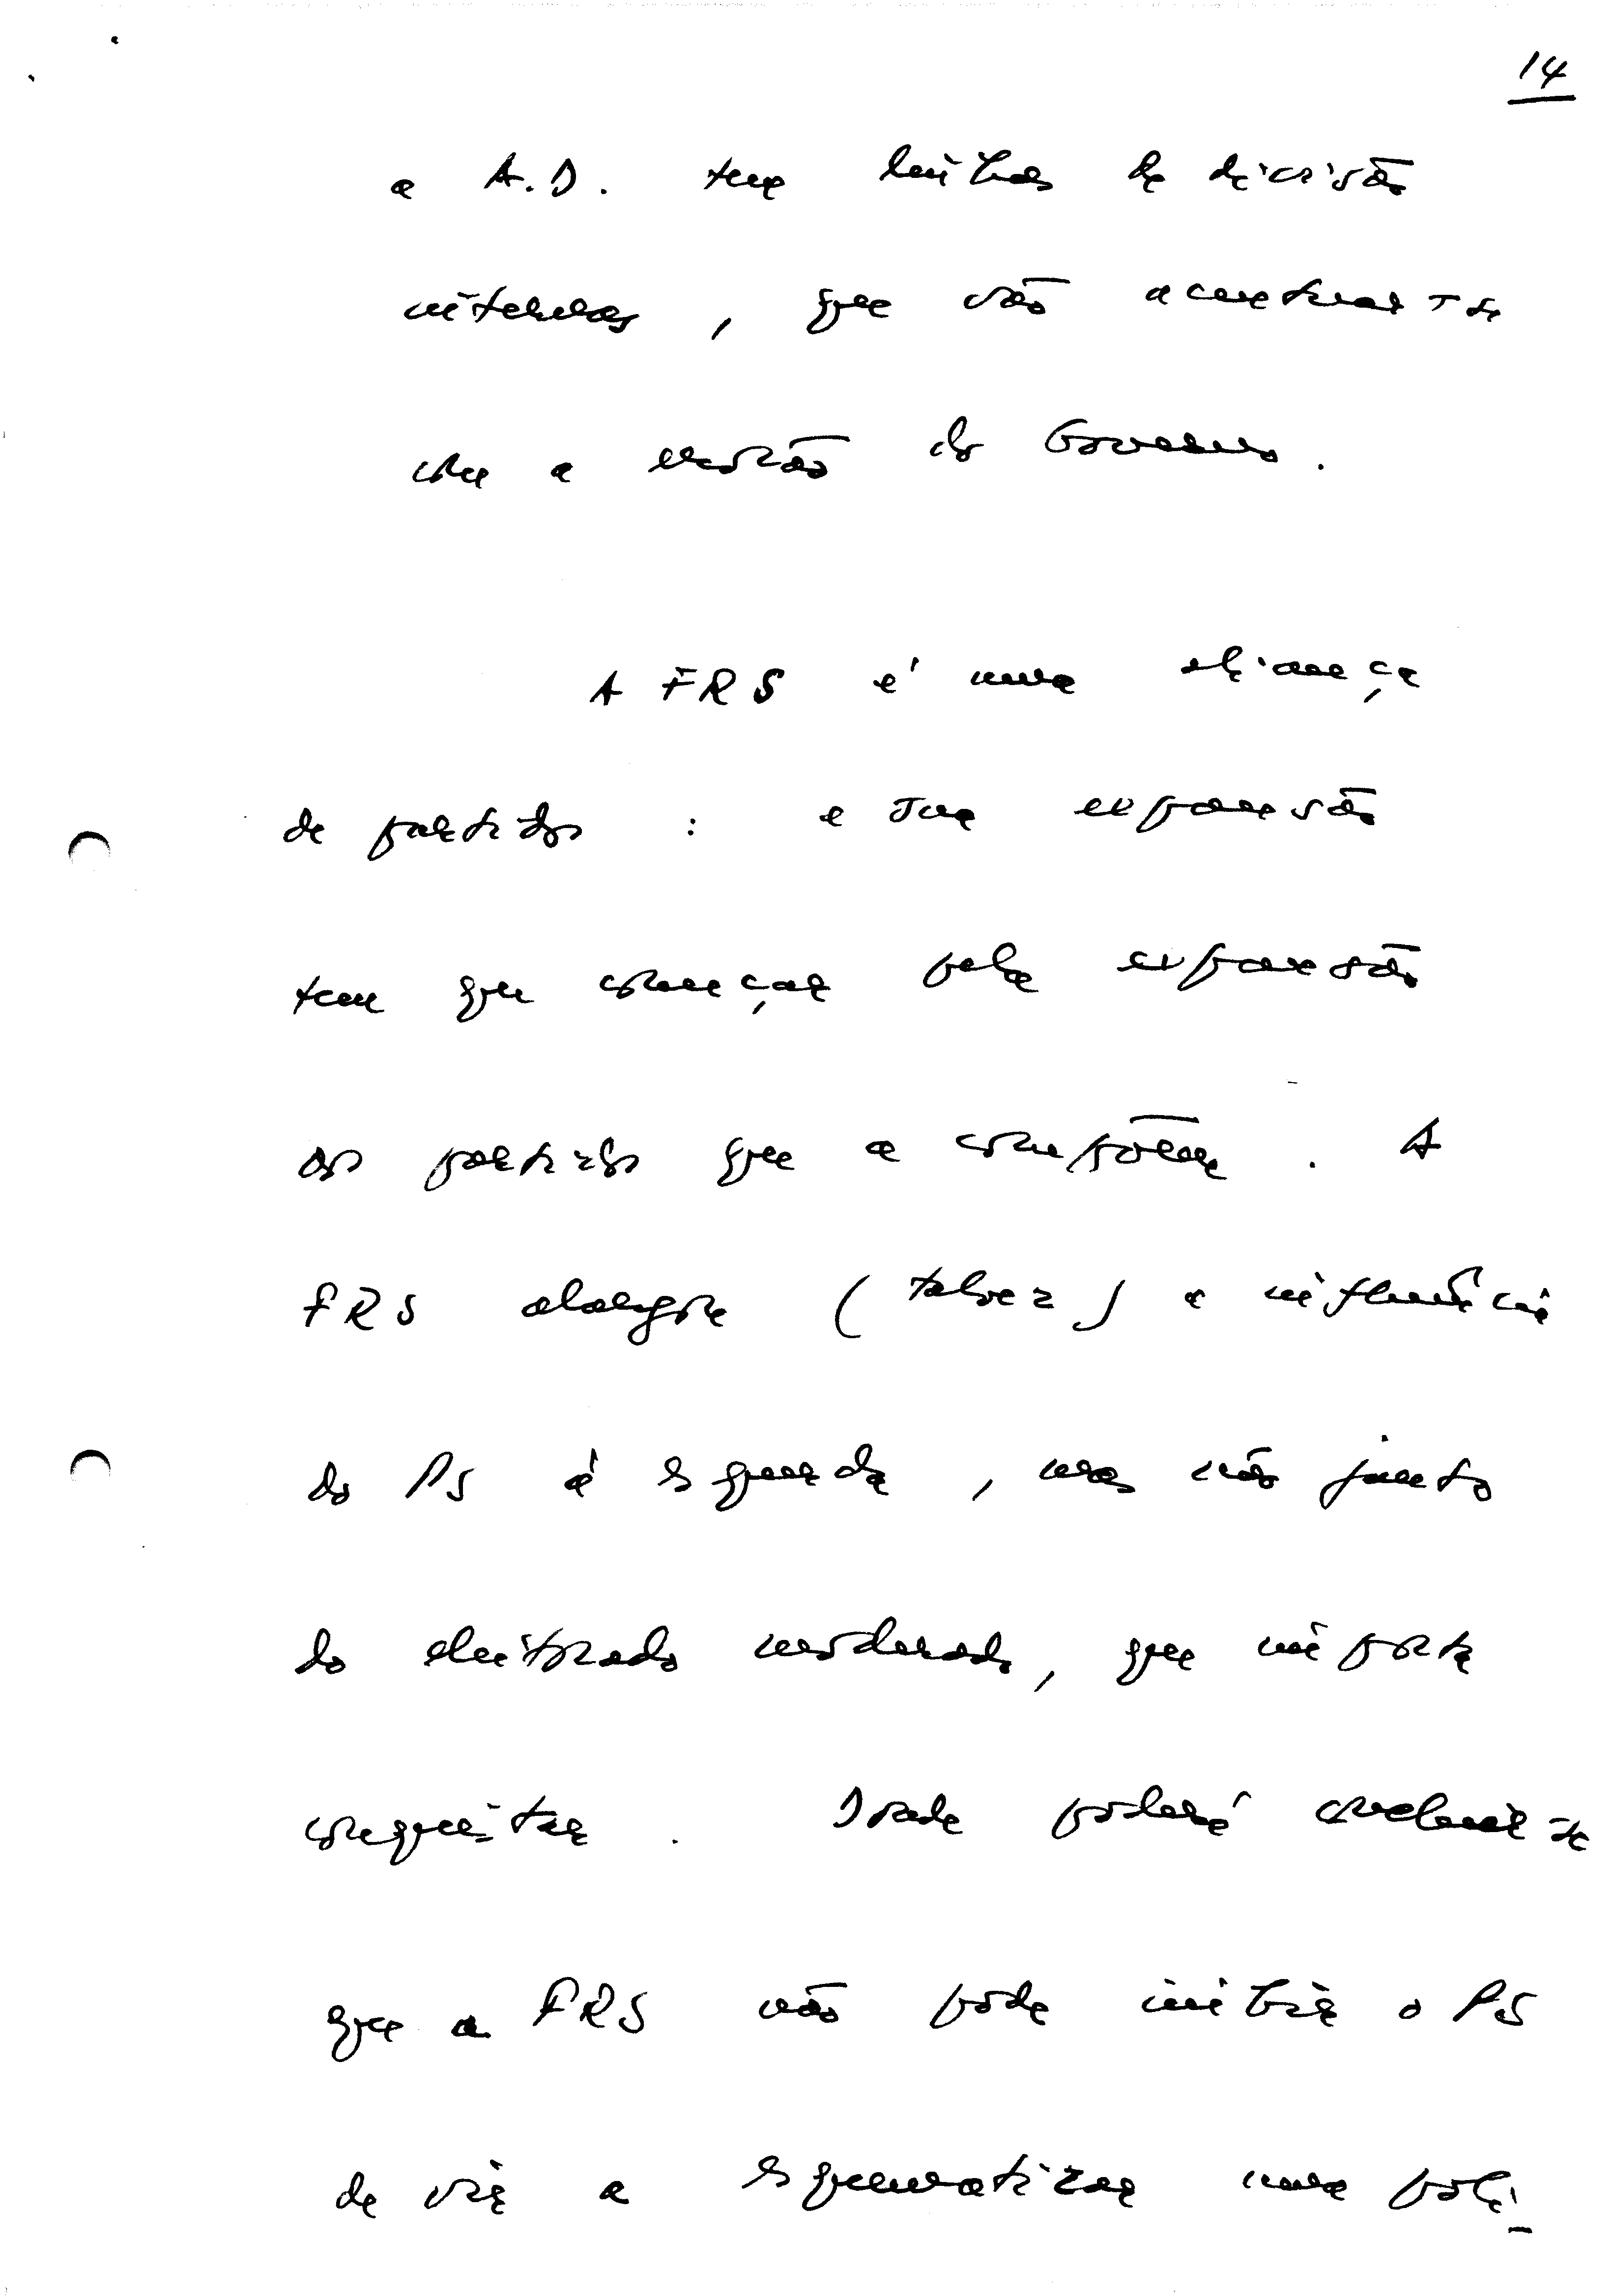 14
a A.D. tem linhas de divisão
internas, que vão acentuar-se
com a erosão do Governo.
A FRS é uma aliança
de partidos : a sua expansão
tem que começar pela expansão
os partidos que a compõem. A
FRS alarga (talvez) a influência
do PS à esquerda, mas não junto
do eleitorado moderado, que importa
conquistar. Donde poderá concluir-se
que a FRS não pode inibir o PS
de vir a esquematizar uma polí-